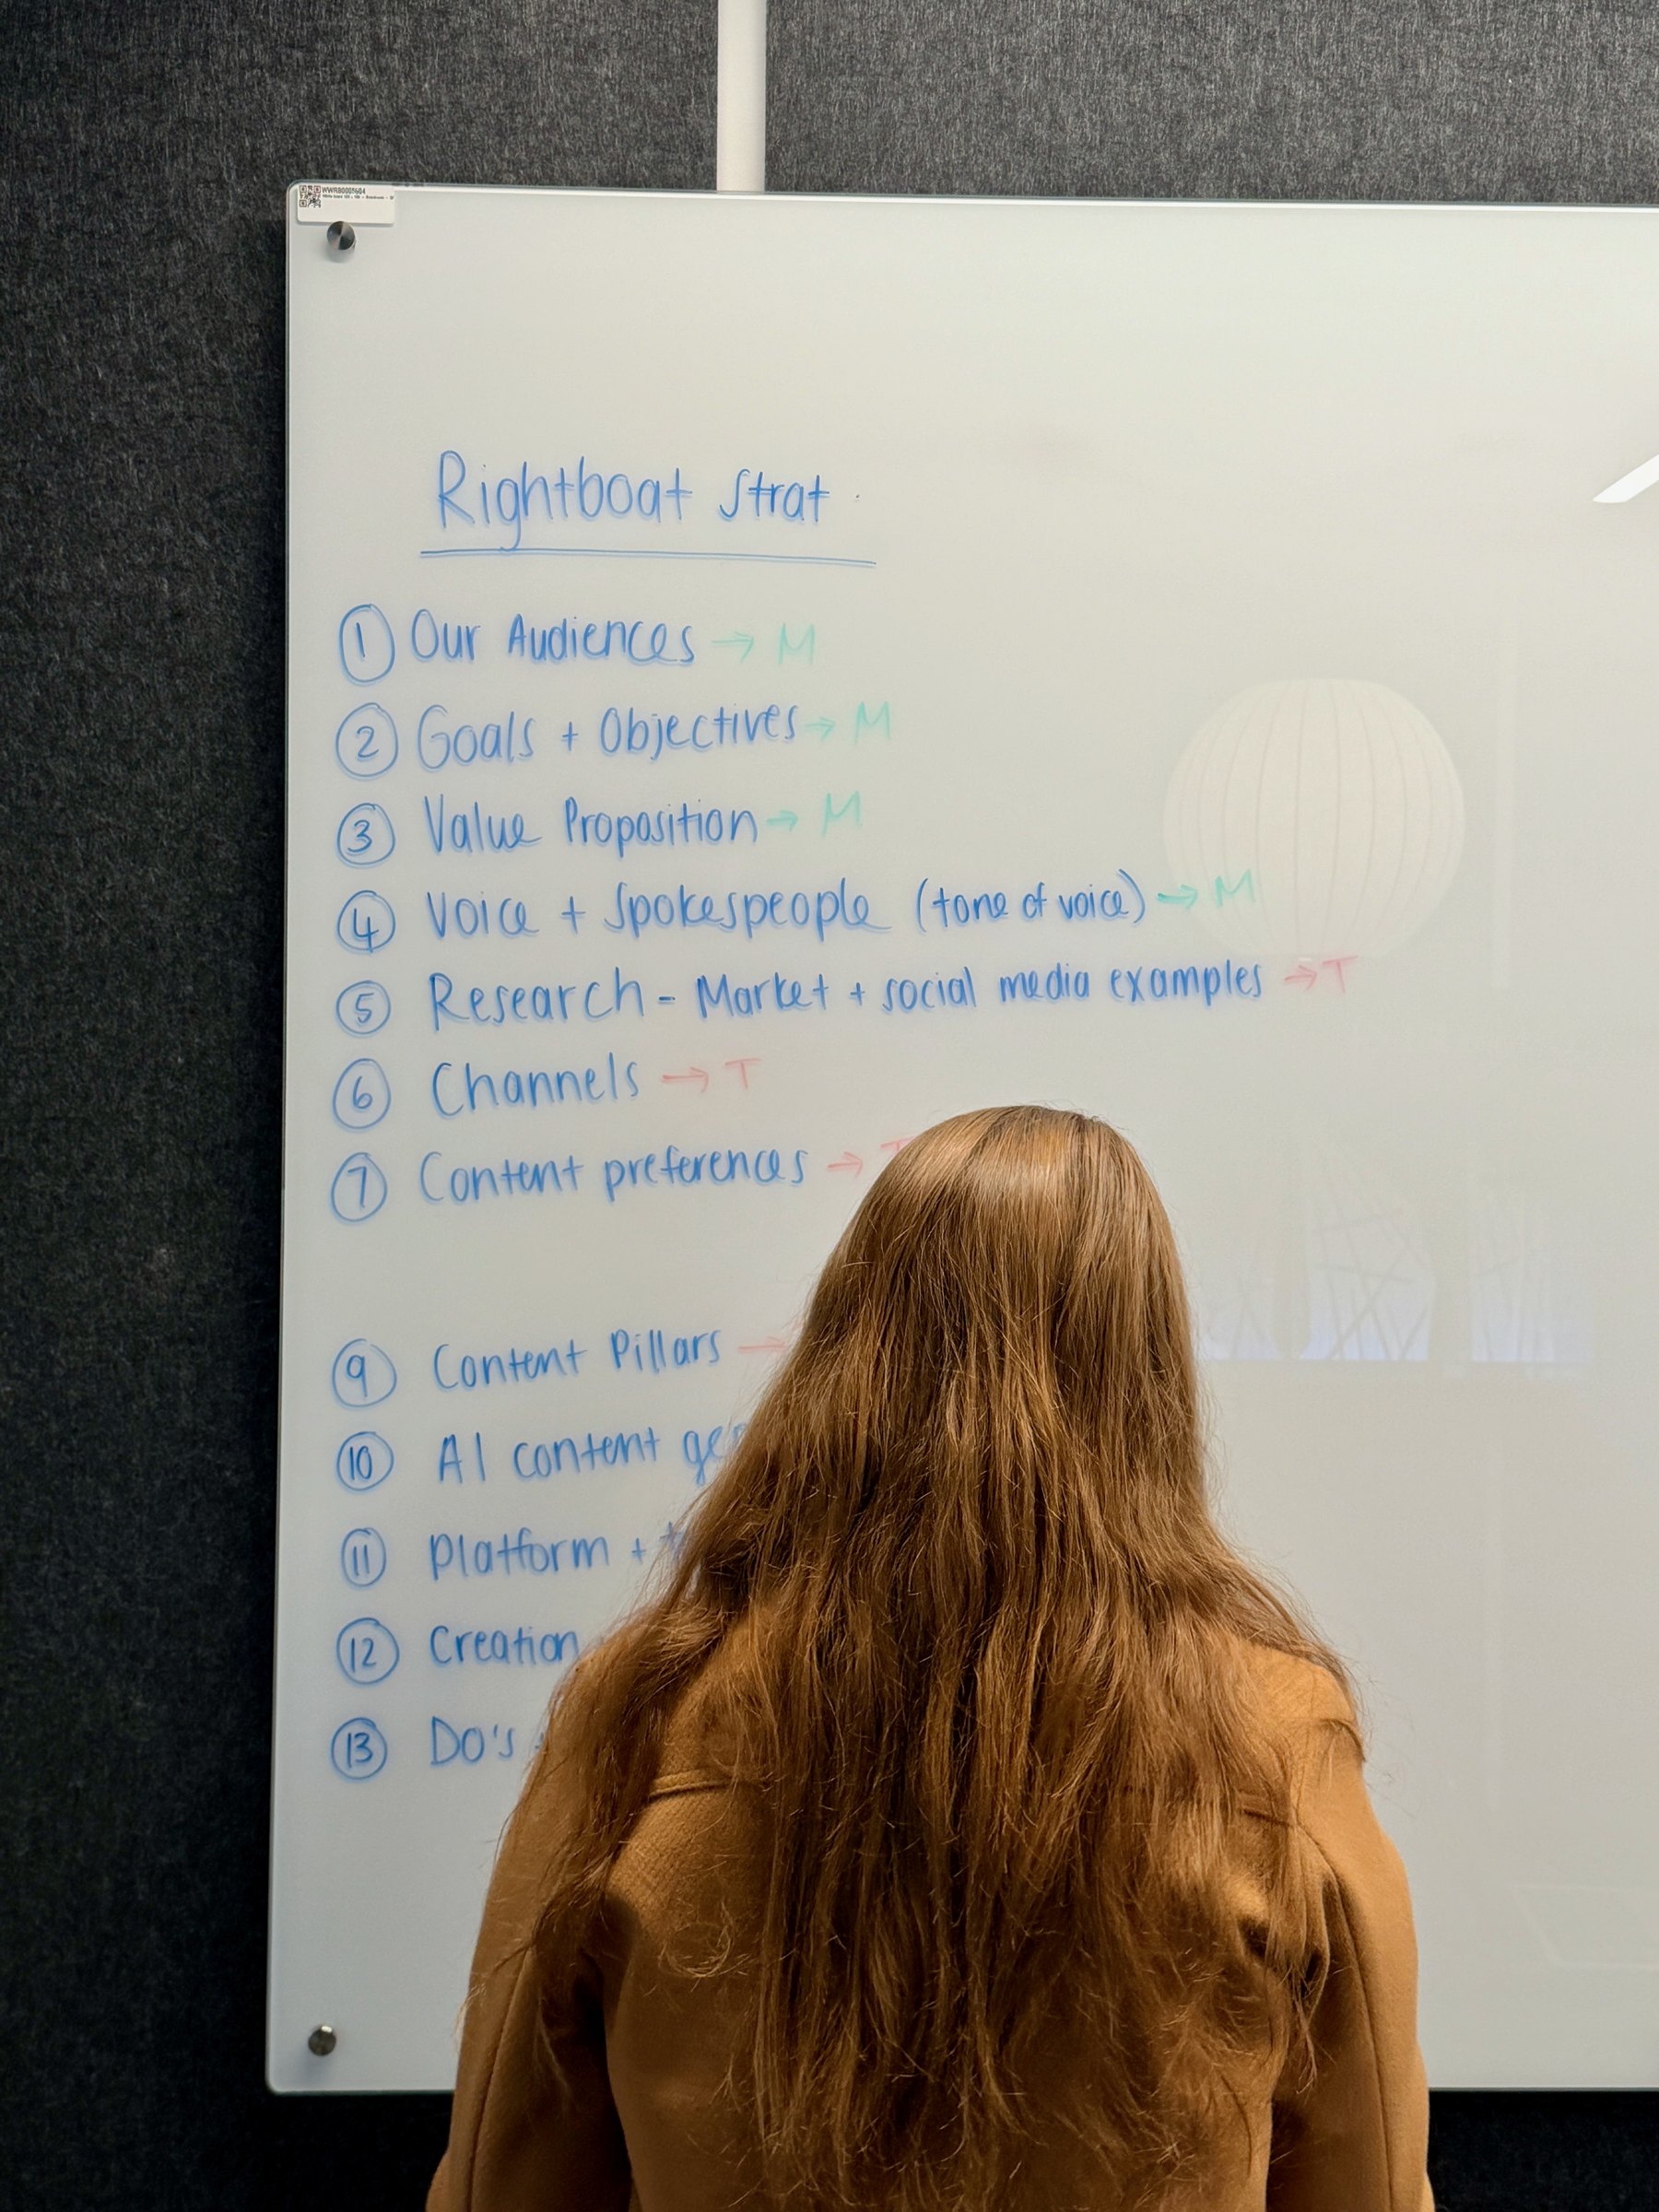 WWRB0008604
Rightboat Strat
① Our Audiences → M
② Goals + Objectives → M
③ Value Proposition → M
④ Voice + Spokespeople (tone of voice) → M
⑤ Research - Market + social media examples → T
⑥ Channels → T
⑦ Content preferences → T
⑨ Content Pillars →
⑩ AI content
⑪ Platform +
⑫ Creation
⑬ Do's